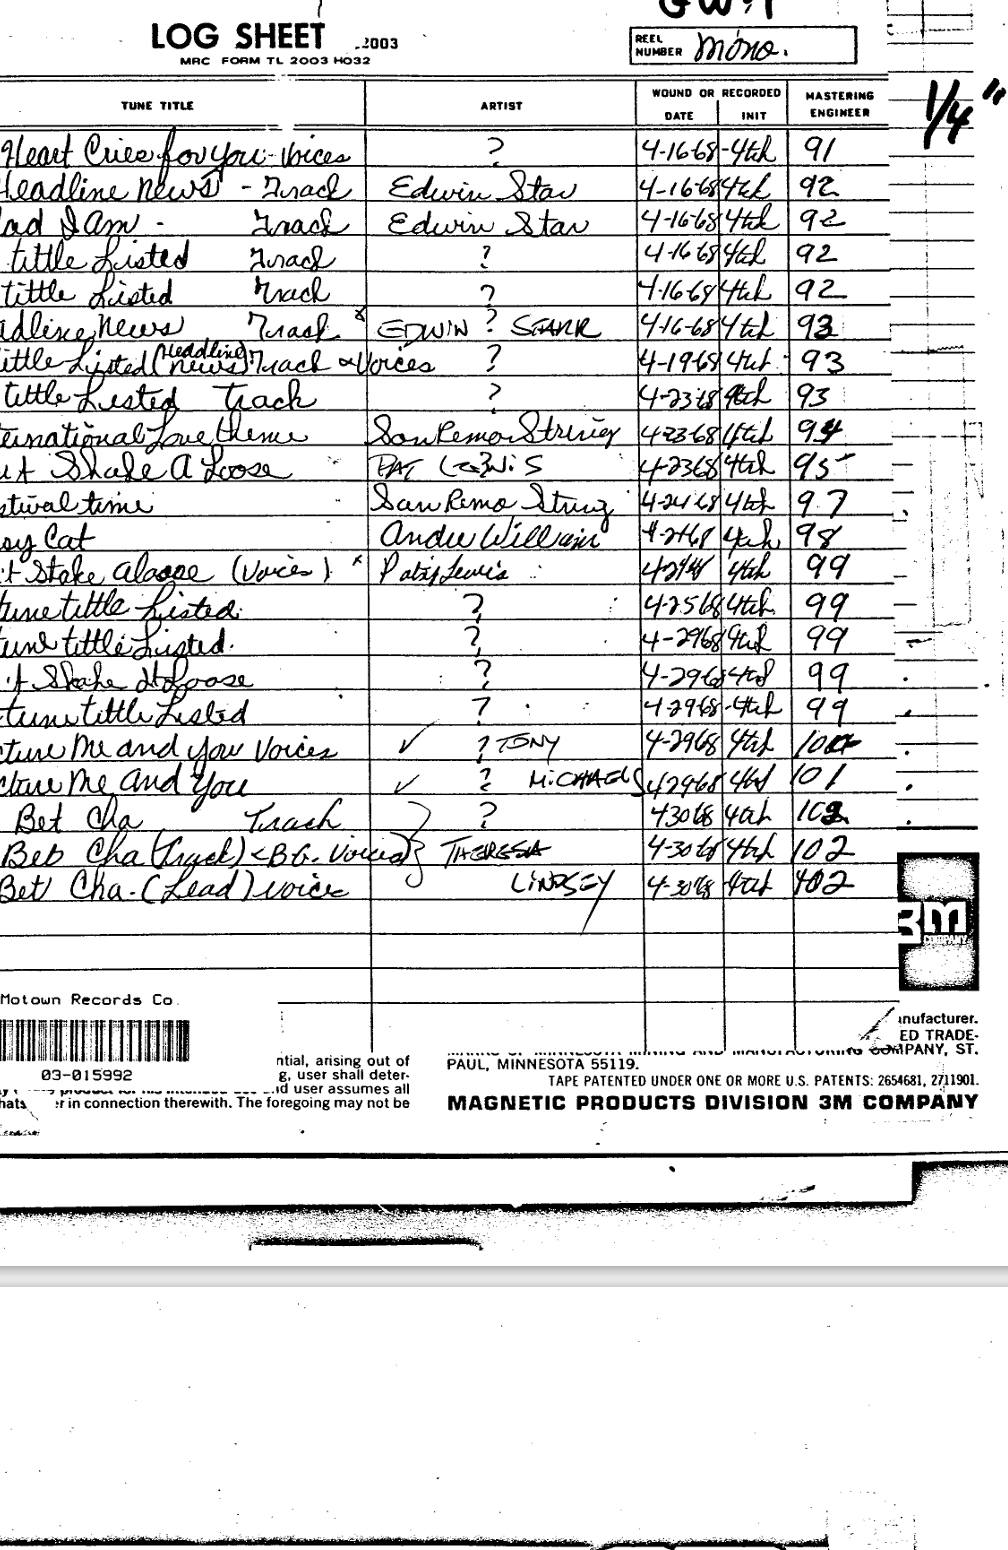 LOG SHEET 2003
MRC FORM TL 2003 H032
REEL NUMBER mono.
1/4"
TUNE TITLE ARTIST WOUND OR RECORDED DATE INIT MASTERING ENGINEER
Heart Cries for You - Voices ? 4-16-68 - 4trk 91
Headline News - Track Edwin Star 4-16-68 4trk 92
I Am - Track Edwin Star 4-16-68 4trk 92
tittle Listed Track ? 4-16-68 4trk 92
tittle Listed Track ? 4-16-68 4trk 92
adline News Track EDWIN ? STARR 4-16-68 4trk 93
ittle Listed (Headline News) Track & Voices ? 4-19-68 4trk 93
tittle Listed Track ? 4-23-68 4trk 93
ternational Love theme San Remo Strings 4-23-68 4trk 94
Shake A Loose PAT LEWIS 4-23-68 4trk 95
stival time San Remo String 4-24-68 4trk 97
Cat Andre William 4trk 98
Shake aloose (Voices) Patsy Lewis 4trk 99
tune tittle Listed. ? 4-25-68 4trk 99
tune tittle Listed. ? 4-29-68 4trk 99
't Shake It Loose ? 4-29-68 4trk 99
tune tittle Listed ? 4-29-68 - 4trk 99
cture Me and you Voices ✓ ? TONY 4-29-68 4trk
cture Me And You ✓ ? MICHAELS 4-29-68 4trk 101
Bet Cha Track ? 4-30-68 4trk 102
Bet Cha (Track) & B.G. Voices THERESA 4-30-68 4trk 102
Bet Cha - (Lead) voice LINDSEY 4-30-68 4trk 102
3M COMPANY
Motown Records Co.
03-015992
anufacturer.
ED TRADE-
MARKS OF MINNESOTA MINING AND MANUFACTURING COMPANY, ST.
PAUL, MINNESOTA 55119.
ntial, arising out of
g, user shall deter-
nd user assumes all
er in connection therewith. The foregoing may not be
TAPE PATENTED UNDER ONE OR MORE U.S. PATENTS: 2654681, 2711901.
MAGNETIC PRODUCTS DIVISION 3M COMPANY